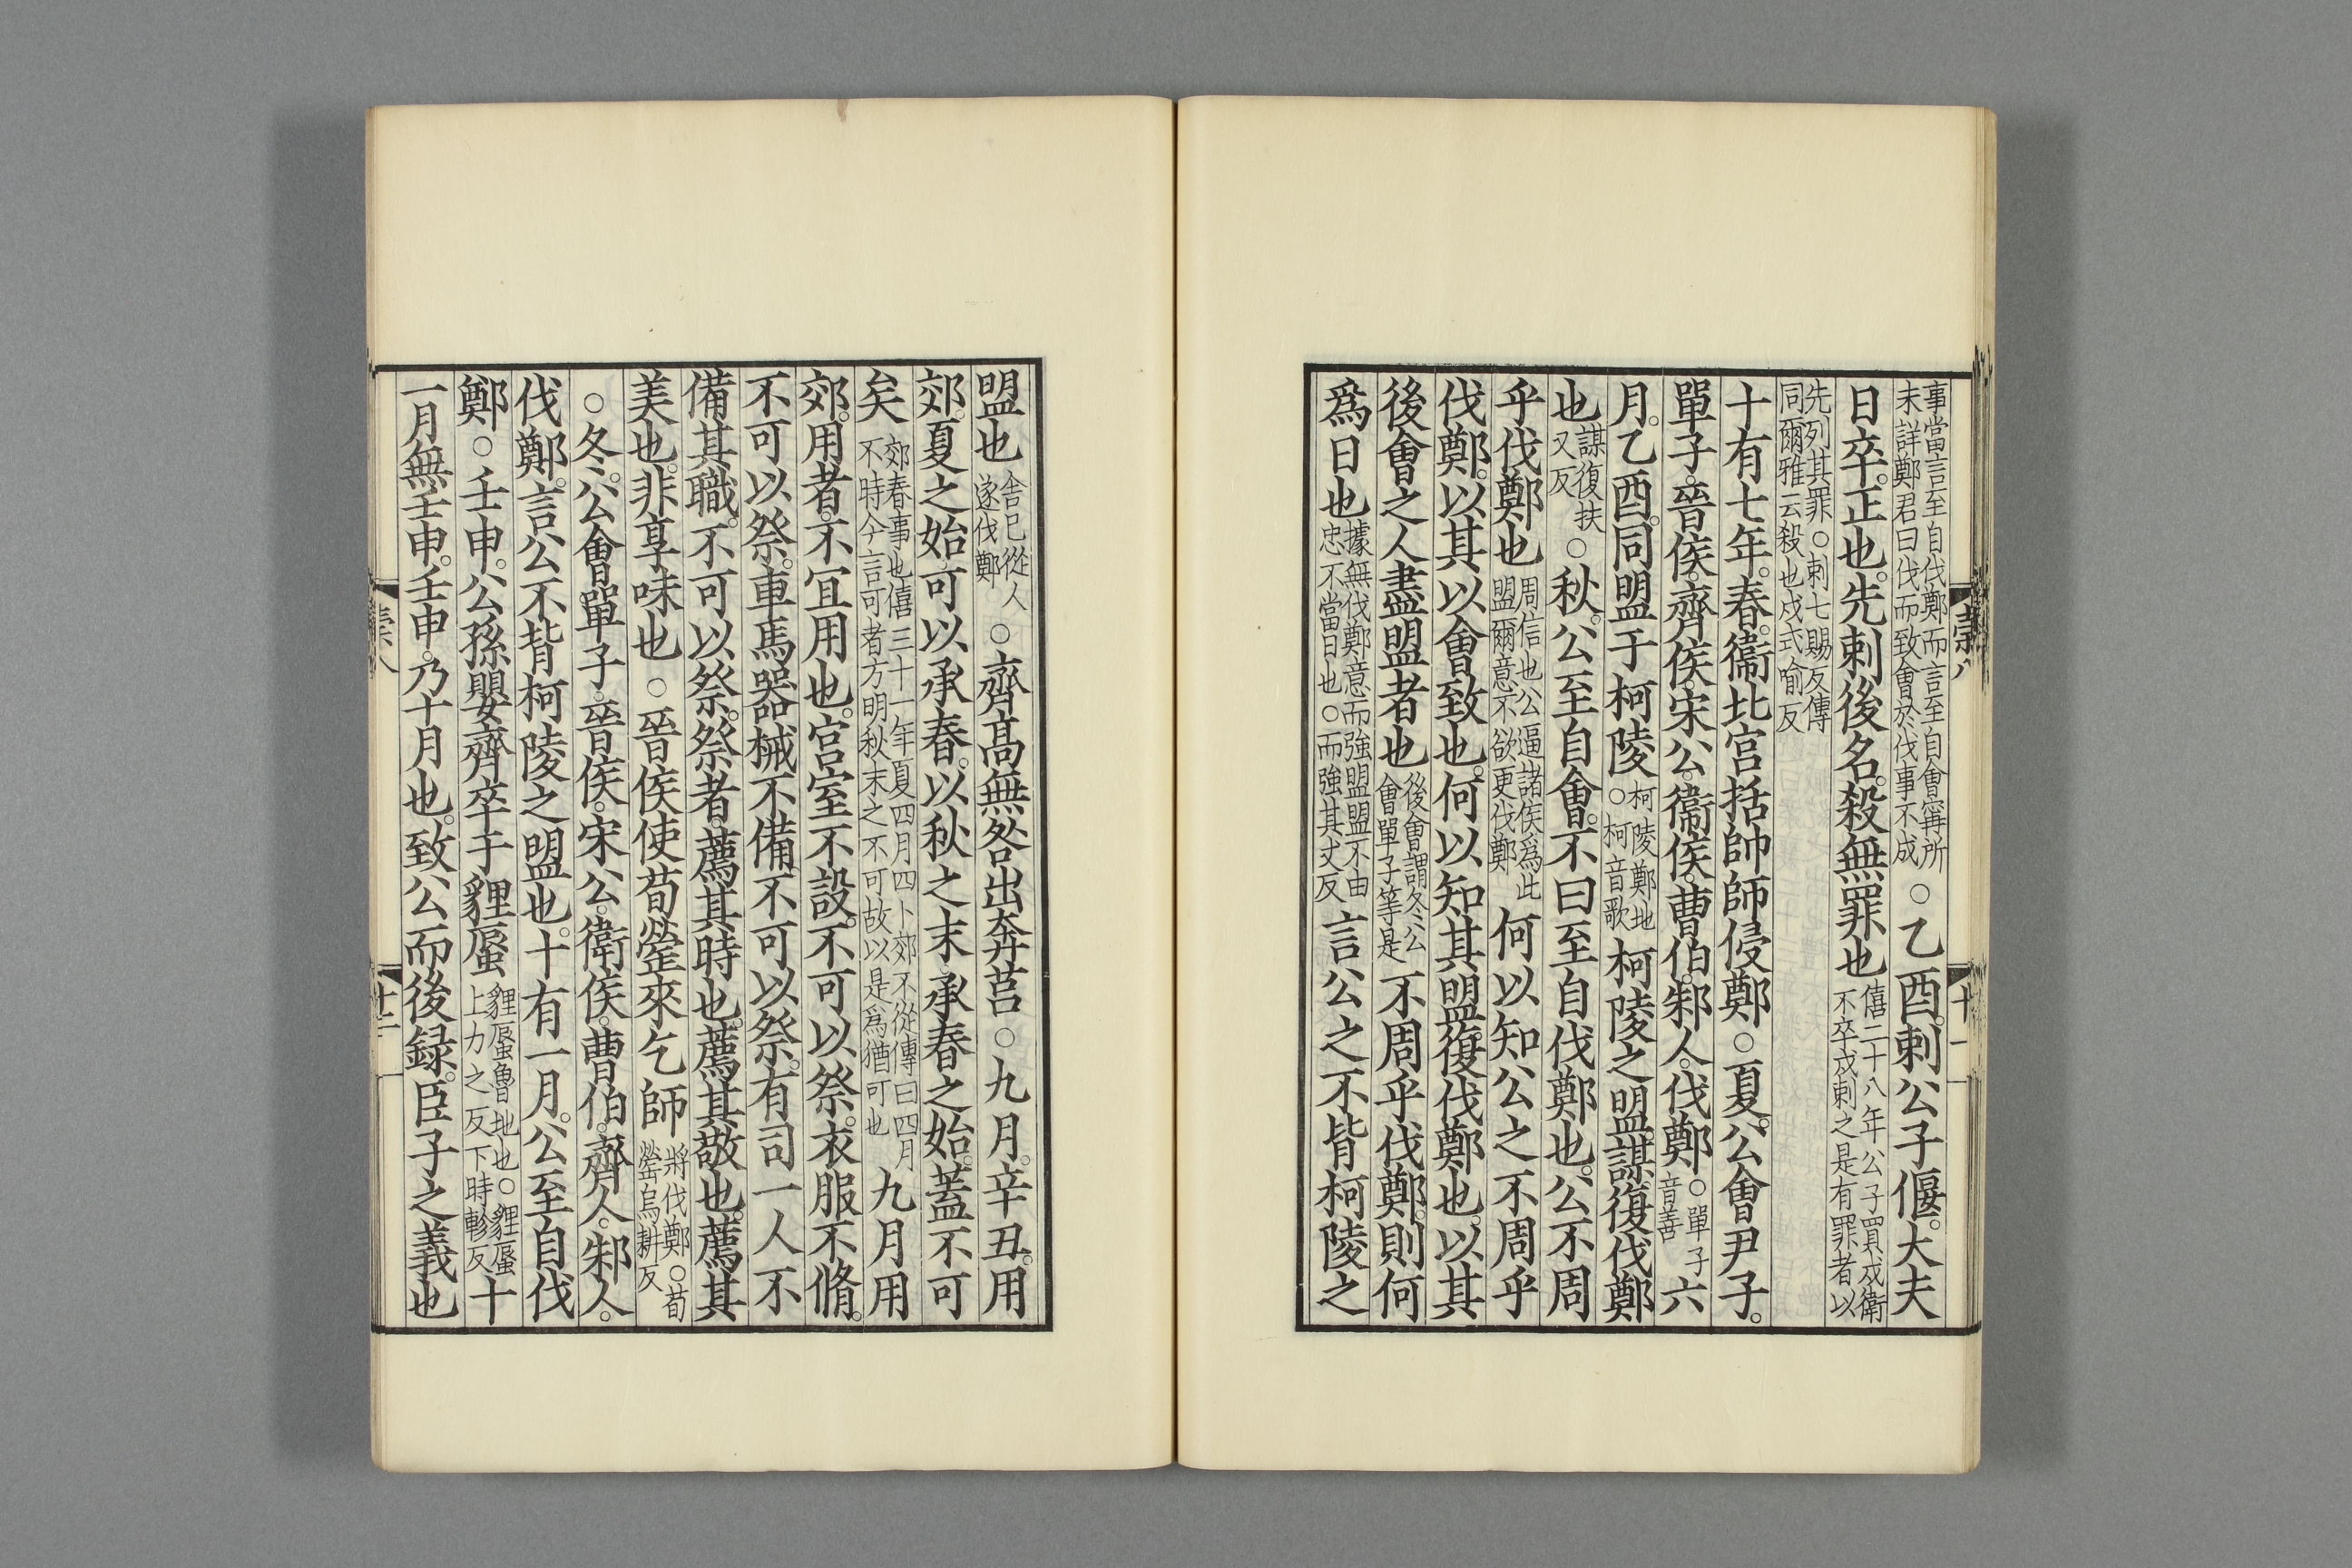 事當言至自伐鄭而言至自會甯所
末詳鄭君曰伐而致會於伐事不成
○乙酉。刺公子偃。大夫
日卒。正也。先刺後名。殺無罪也
僖二十八年公子買戍衛
不卒戍刺之是有罪者以
先列其罪○刺七賜反傳
同爾雅云殺也戍式喻反
十有七年。春。衞北宮括帥師侵鄭○夏。公會尹子。
單子。晉侯。齊侯。宋公。衞侯。曹伯。邾人。伐鄭
○單子
音善
六
月。乙酉。同盟于柯陵
柯陵鄭地
○柯音歌
柯陵之盟。謀復伐鄭
也
謀復扶
又反
○秋。公至自會。不曰至自伐鄭也。公不周
乎伐鄭也
周信也公逼諸侯爲此
盟爾意不欲更伐鄭
何以知公之不周乎
伐鄭。以其以會致也。何以知其盟復伐鄭也。以其
後會之人盡盟者也
後會謂冬公
會單子等是
不周乎伐鄭。則何
爲日也
據無伐鄭意而強盟盟不由
忠不當日也○而強其丈反
言公之不背柯陵之
盟也
舍已從人
遂伐鄭
○齊高無咎出奔莒○九月。辛丑。用
郊。夏之始。可以承春。以秋之末。承春之始。蓋不可
矣
郊春事也僖三十一年夏四月四卜郊不從傳曰四月
不時今言可者方明秋末之不可故以是爲猶可也
九月用
郊。用者。不冝用也。宮室不設。不可以祭。衣服不脩。
不可以祭。車馬器械不備。不可以祭。有司一人不
備其職。不可以祭。祭者。薦其時也。薦其敬也。薦其
美也。非享味也○晉侯使荀罃來乞師
將伐鄭○荀
罃烏耕反
○冬。公會單子。晉侯。宋公。衛侯。曹伯。齊人。邾人。
伐鄭。言公不背柯陵之盟也。十有一月。公至自伐
鄭○壬申。公孫嬰齊卒于貍蜃
貍蜃魯地也○貍蜃
上力之反下時軫反
十
一月無壬申。壬申。乃十月也。致公而後録。臣子之義也